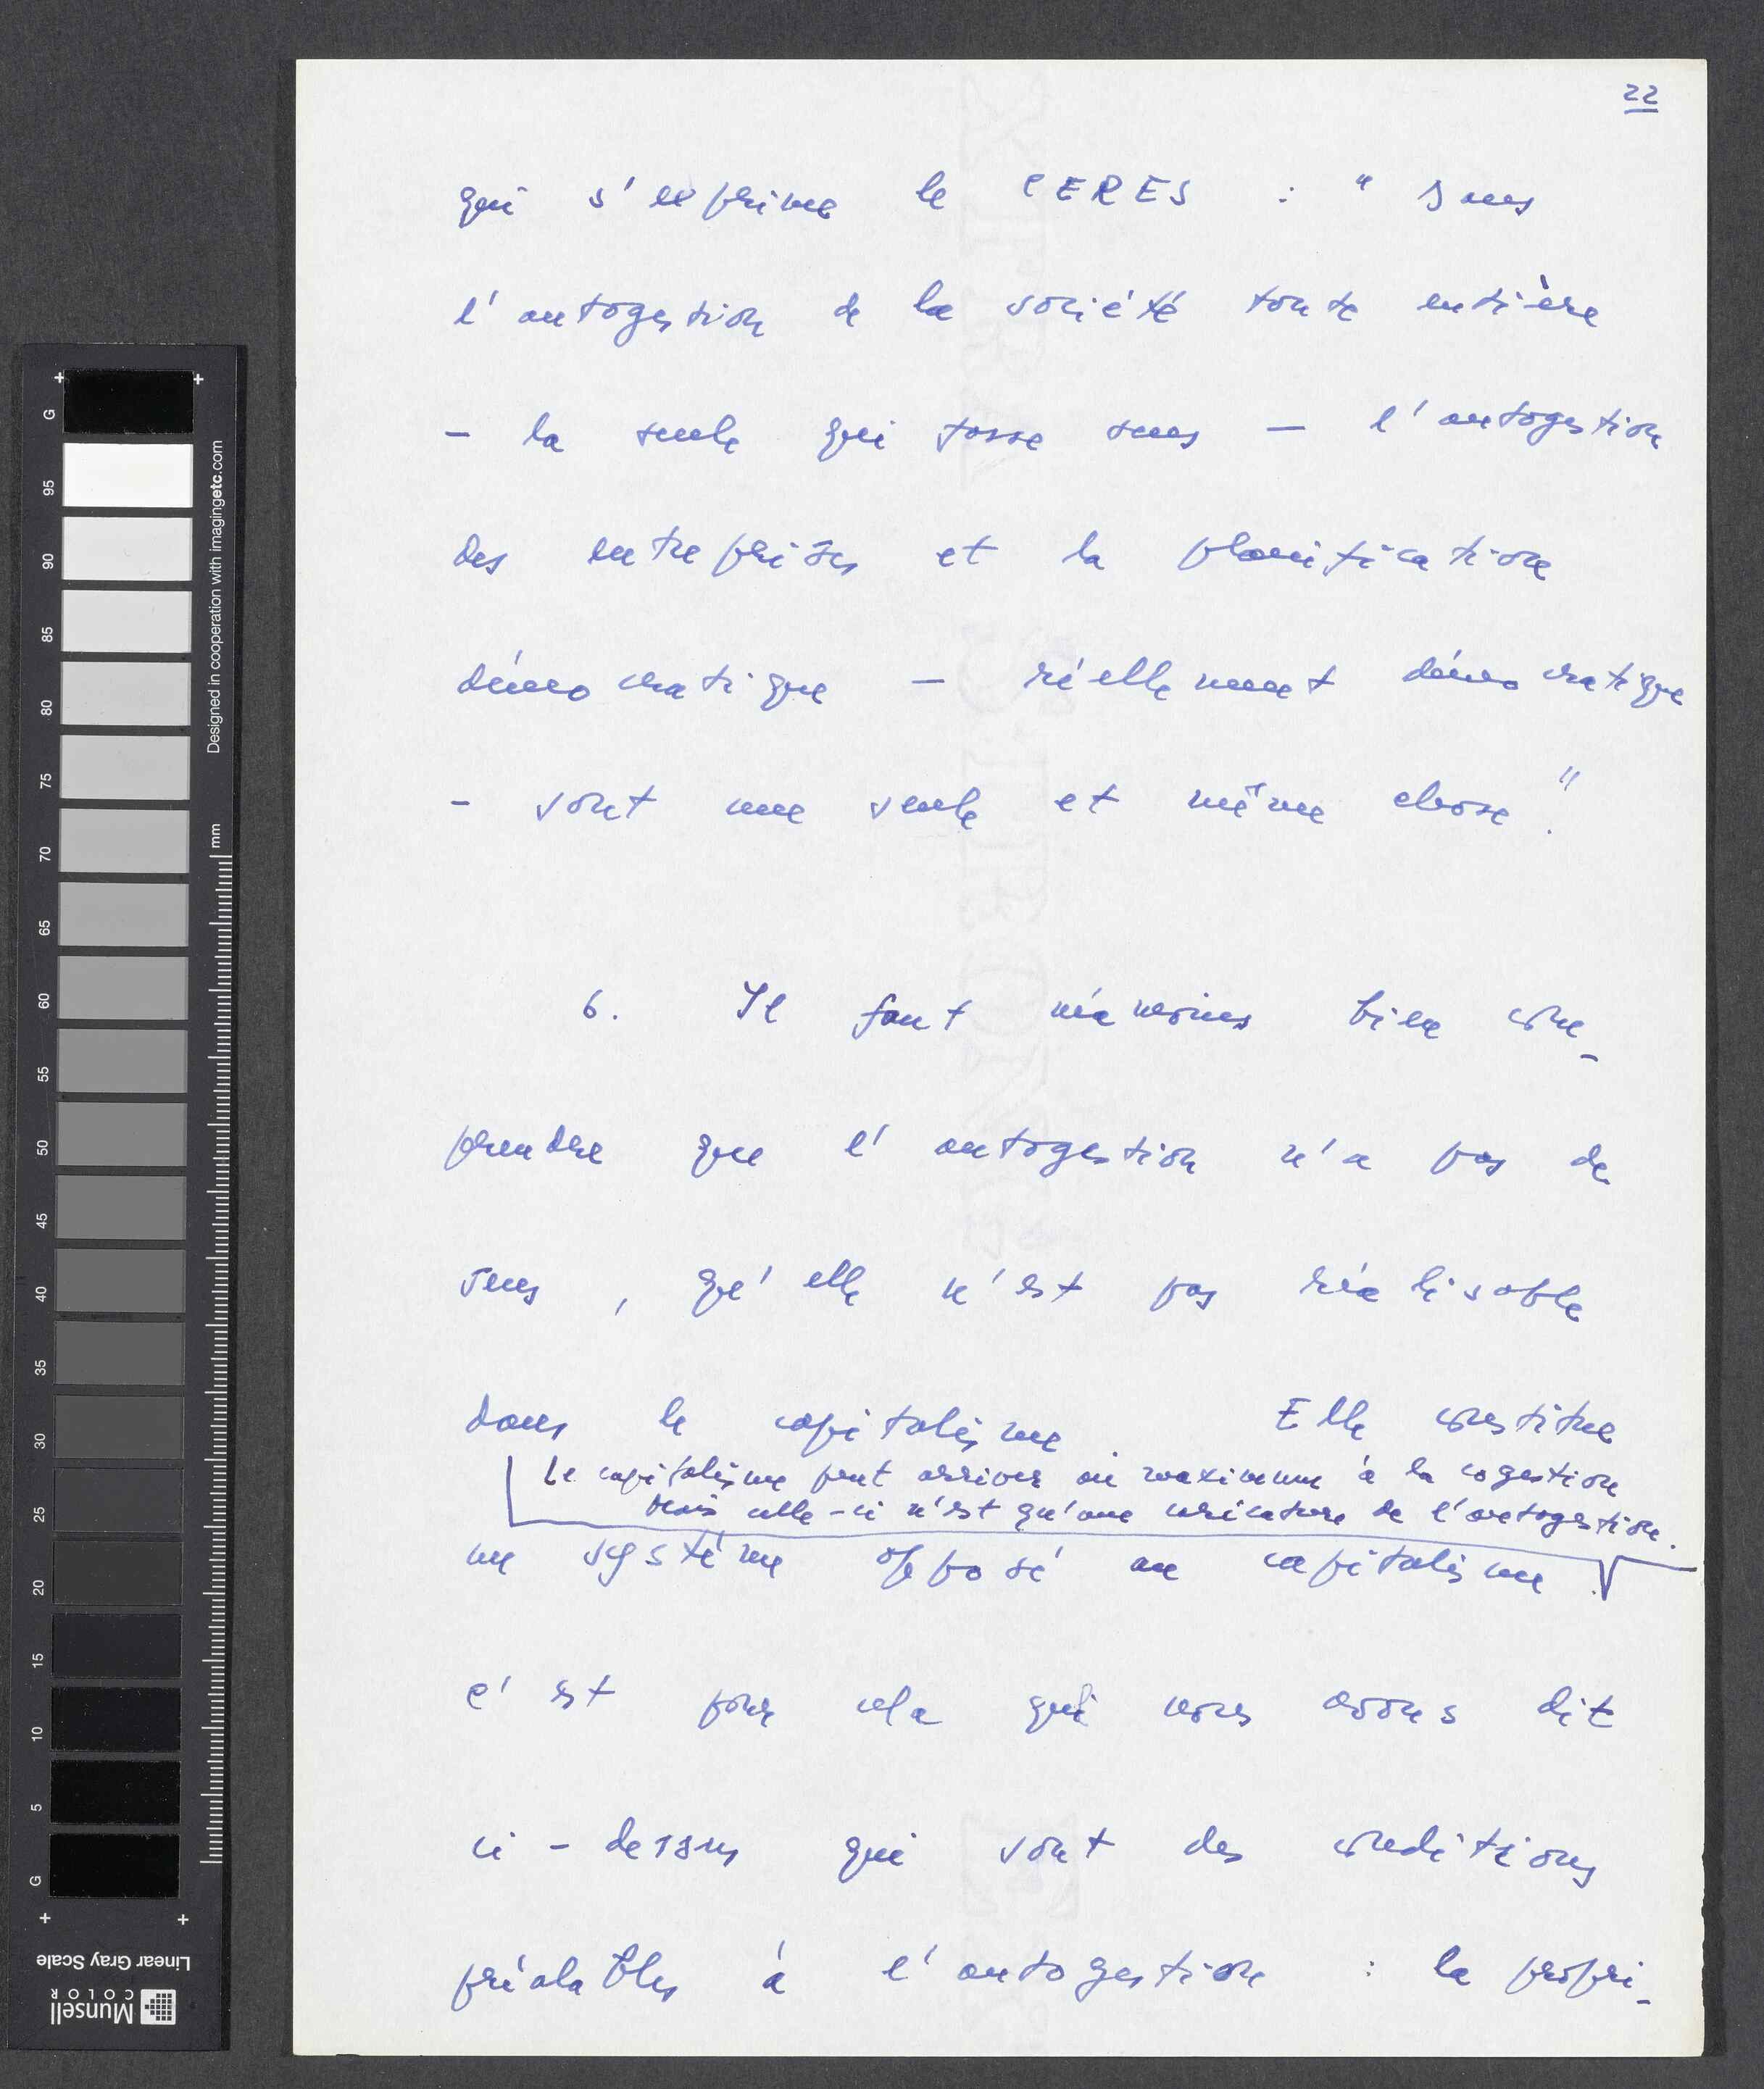 22
qui s'exprime le CERES : " Dans
l'autogestion de la société toute entière
– la seule qui fasse sens – l'autogestion
des entreprises et la planification
démocratique – réellement démocratique
– sont une seule et même chose".
6. Il faut néanmoins bien com-
prendre que l'autogestion n'a pas de
sens, qu'elle n'est pas réalisable
dans le capitalisme. Elle constitue
Le capitalisme peut arriver au maximum à la cogestion
Mais celle-ci n'est qu'une caricature de l'autogestion.
un système opposé au capitalisme.
c'est pour cela que nous avons dit
ci-dessus qui sont des conditions
préalables à l'autogestion : la propri-
G
95
90
85
80
75
70
65
60
55
50
45
40
35
30
25
20
15
10
5
G
Designed in cooperation with imagingetc.com
mm
Linear Gray Scale
Munsell
COLOR